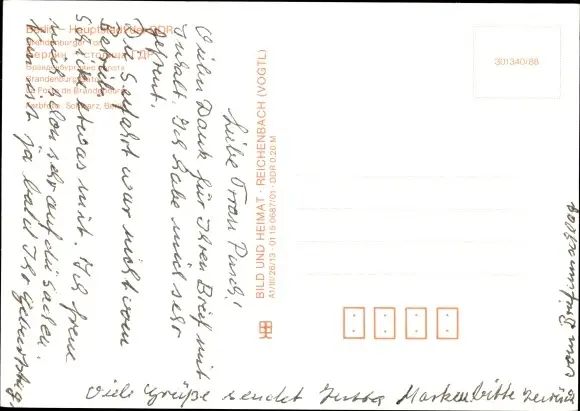 Berlin - Hauptstadt der DDR
Brandenburger Tor
Берлин - столица ГДР
Бранденбургские ворота
Brandenburg Gate
La Porte de Brandebourg
Farbfoto: Schwarz, Berlin
301340/88
BILD UND HEIMAT · REICHENBACH (VOGTL)
A1/III/26/13 · 01 15 0687/01 · DDR 0,20 M
Liebe Frau Pusch!
Vielen Dank für Ihren Brief mit
Inhalt. Ich habe mich sehr
gefreut.
Die Seefahrt war nicht vom
Betrieb.
Schicke etwas mit. Ich freue
mich schon sehr auf die Sachen.
Nun ist ja bald Ihr Geburtstag,
Viele Grüße sendet Jutta Marken bitte zurück
vom Briefumschlag